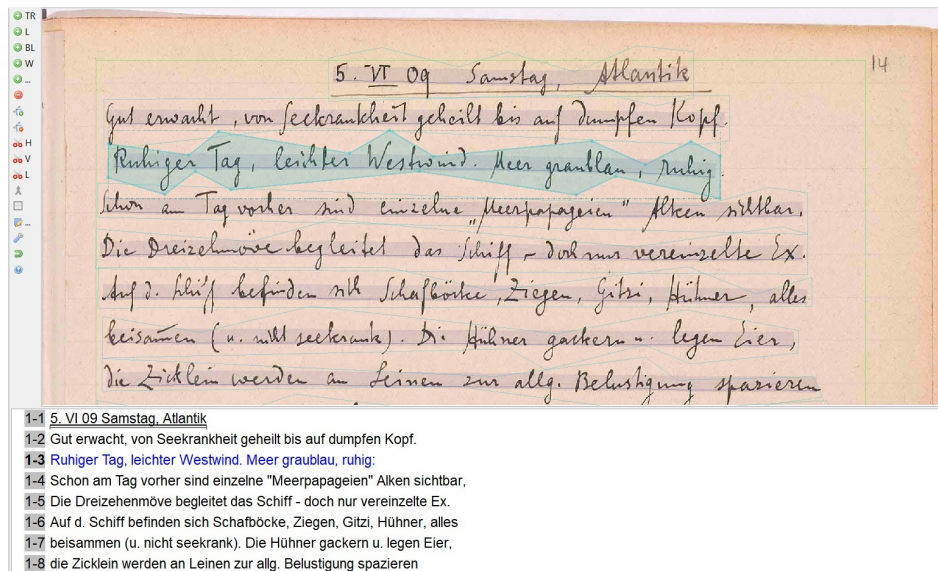 TR
L
BL
W
...
H
V
L
...
14
5. VI 09 Samstag, Atlantik
Gut erwacht, von Seekrankheit geheilt bis auf dumpfen Kopf.
Ruhiger Tag, leichter Westwind. Meer graublau, ruhig
Schon am Tag vorher sind einzelne „Meerpapageien" Alken sichtbar.
Die Dreizehmöve begleitet das Schiff - doch nur vereinzelte Ex.
Auf d. Schiff befinden sich Schafböcke, Ziegen, Gitzi, Hühner, alles
beisam̄en (u. nicht seekrank). Die Hühner gackern u. legen Eier,
die Zicklein werden an Leinen zur allg. Belustigung spazieren
1-1 5. VI 09 Samstag, Atlantik
1-2 Gut erwacht, von Seekrankheit geheilt bis auf dumpfen Kopf.
1-3 Ruhiger Tag, leichter Westwind. Meer graublau, ruhig:
1-4 Schon am Tag vorher sind einzelne "Meerpapageien" Alken sichtbar,
1-5 Die Dreizehenmöve begleitet das Schiff - doch nur vereinzelte Ex.
1-6 Auf d. Schiff befinden sich Schafböcke, Ziegen, Gitzi, Hühner, alles
1-7 beisammen (u. nicht seekrank). Die Hühner gackern u. legen Eier,
1-8 die Zicklein werden an Leinen zur allg. Belustigung spazieren